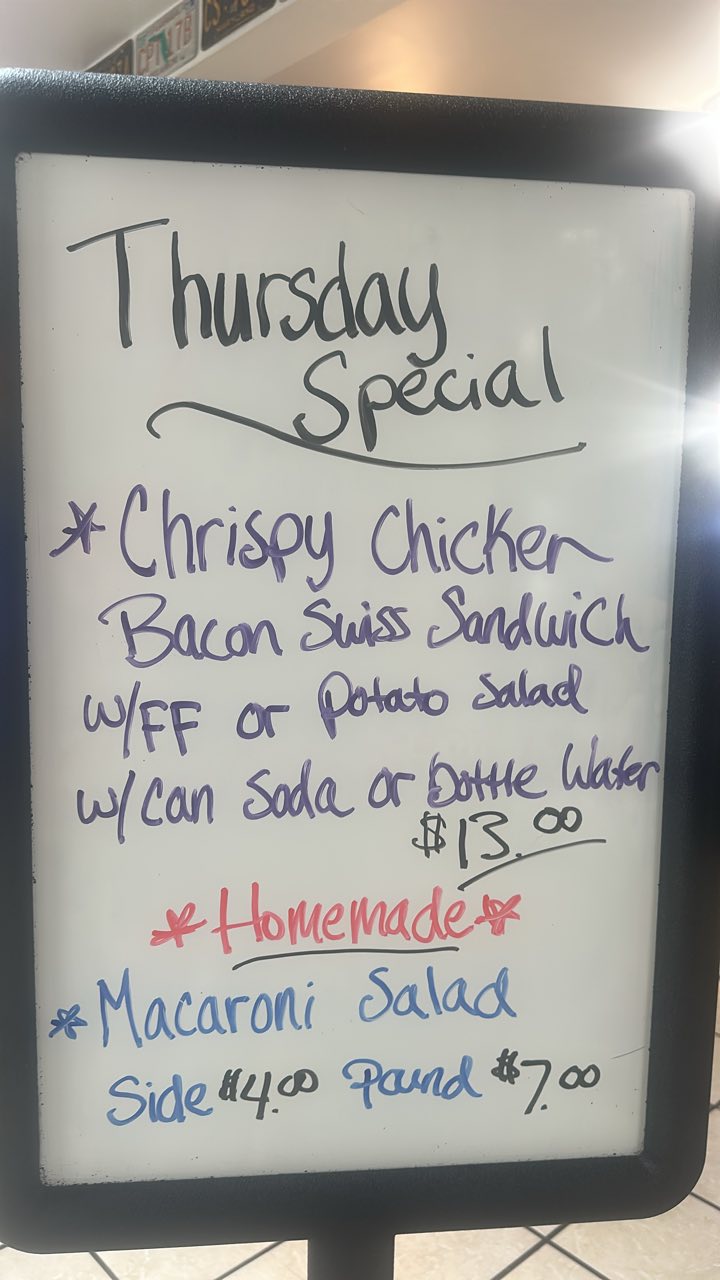 CPT 17B
Thursday
Special
*Chrispy Chicken
Bacon Swiss Sandwich
w/FF or Potato Salad
w/Can Soda or Bottle Water
$13.00
*Homemade*
*Macaroni Salad
Side $4.00 Pound $7.00